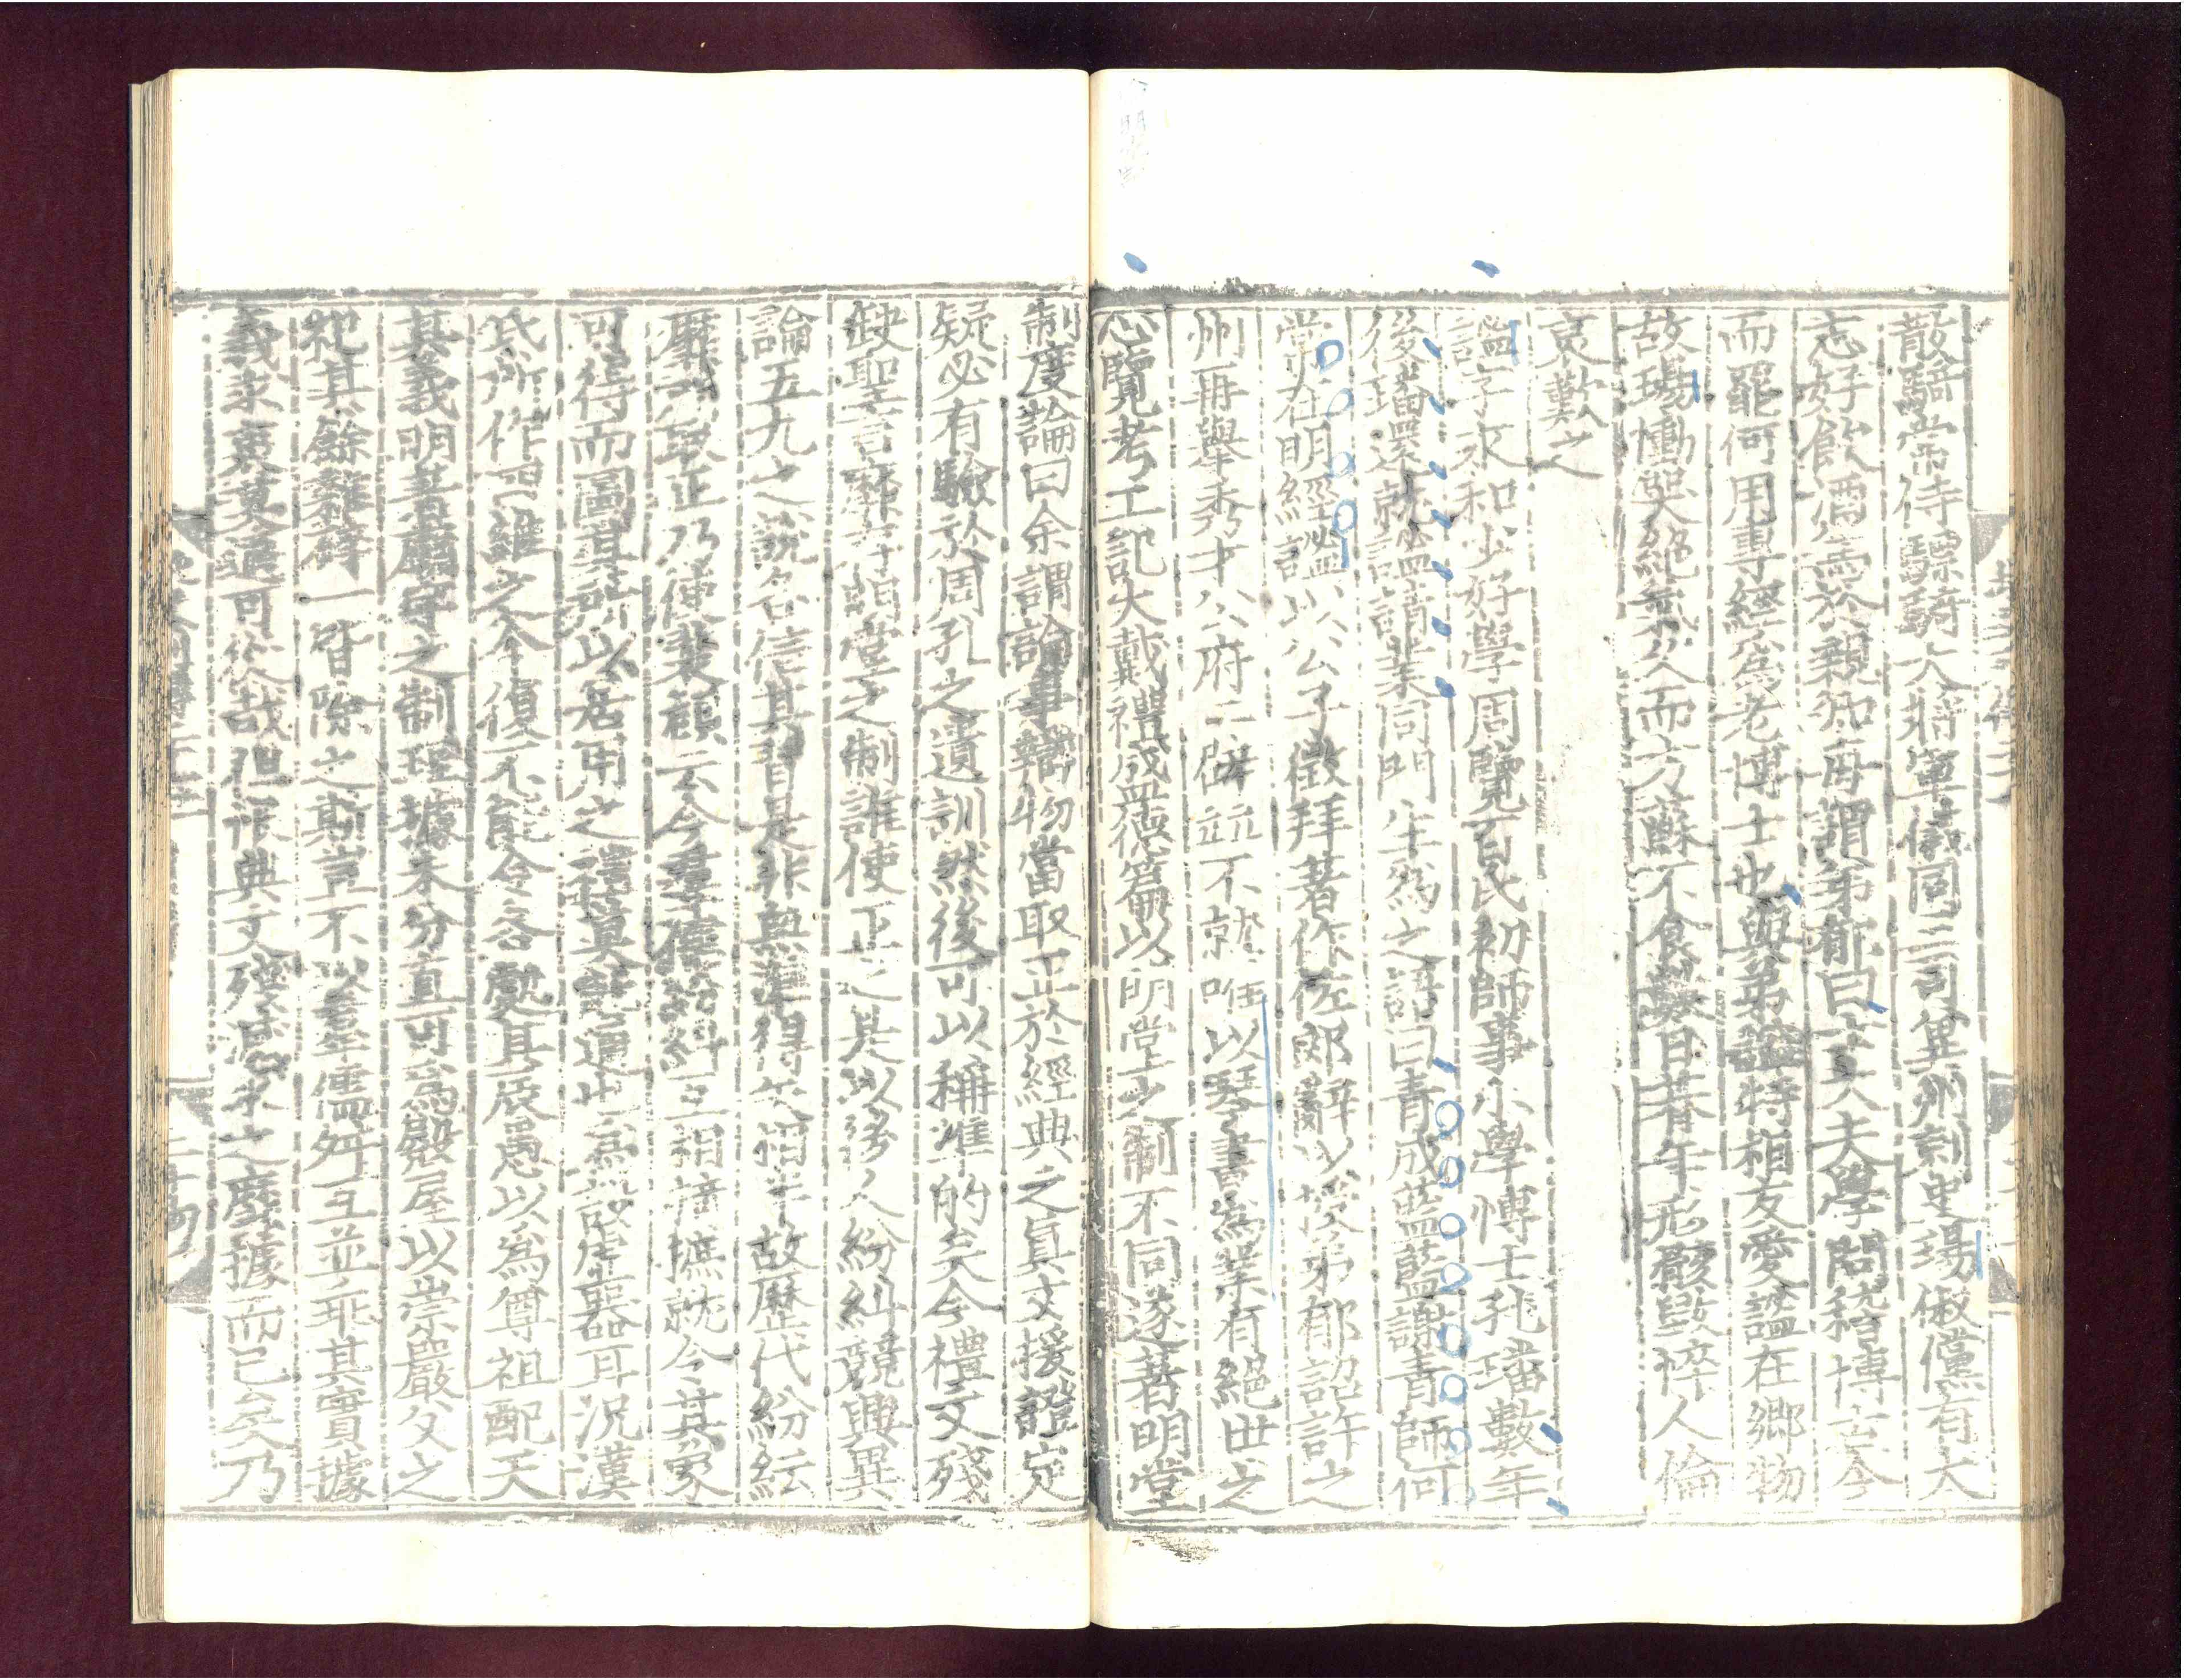 散騎常侍驃騎大將軍儀同三司冀州刺史瑒俶儻有大
志好飲酒篤於親知每謂弟郁曰士大夫學問稽博古今
而罷何用專經爲老博士也與弟謐特相友愛謐在鄉物
故瑒慟哭絕氣久而方蘇不食數日朞年形骸毀悴人倫
哀歎之
謐字永和少好學周覽百氏初師事小學博士孔璠數年
後璠還就謐請業同門生爲之語曰青成藍藍謝青師何
常在明經謐以公子徵拜著作佐郎辭以授弟郁詔許之
州再舉秀才公府二辟並不就唯以琴書爲業有絕世之
心覽考工記大戴禮盛德篇以明堂之制不同遂著明堂
制度論曰余謂論事辯物當取正於經典之真文援證定
疑必有驗於周孔之遺訓然後可以稱準的矣今禮文殘
缺聖言靡存明堂之制誰使正之是以後人紛糾競興異
論五九之說各信其習是非無準得失相半故歷代紛紜
靡所取正乃使裴頠云今羣儒紛糾互相掎摭就令其象
可得而圖其所以居用之禮莫能通也爲設虛器耳況漢
氏所作四維之个復不能令各處其辰愚以爲尊祖配天
其義明著廟宇之制理據未分直可爲殿屋以崇嚴父之
祀其餘雜碎一皆除之斯豈不以羣儒舛互並乖其實據
義求衷莫適可從哉但恨典文殘滅求之靡據而已矣乃